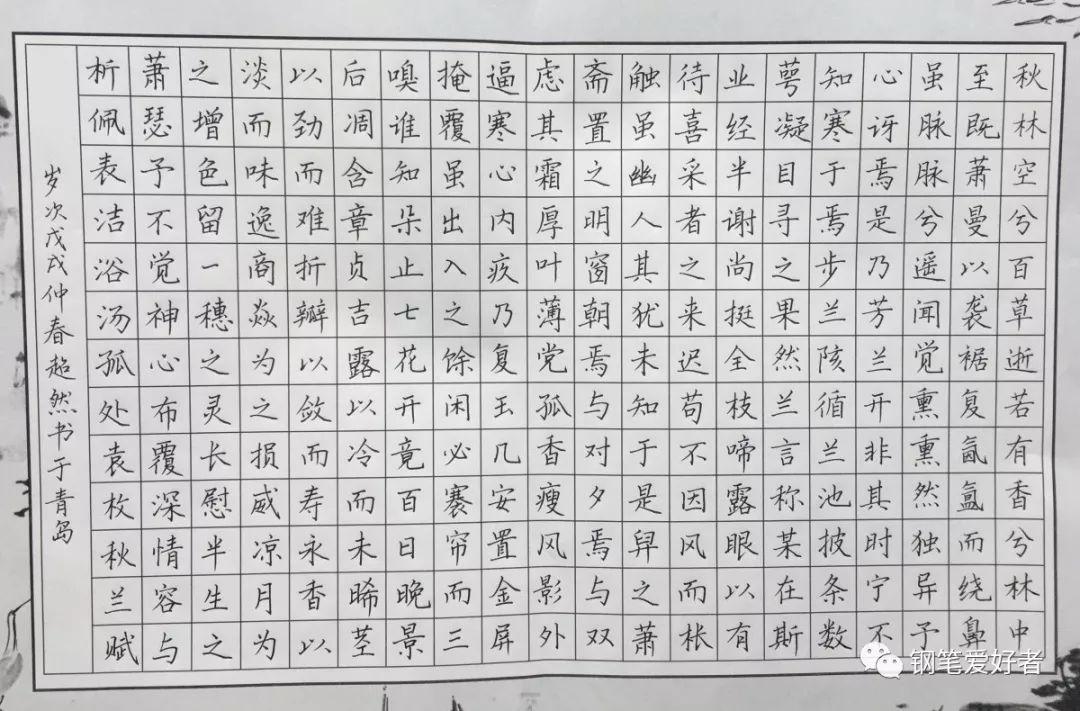 秋林空兮百草逝若有香兮林中
至既萧曼以袭裾复氤氲而绕鼻
虽脉脉兮遥闻觉熏熏然独异予
心讶焉是乃芳兰开非其时宁不
知寒于焉步兰陔循兰池披条数
萼凝目寻之果然兰言称某在斯
业经半谢尚挺全枝啼露眼以有
待喜采者之来迟苟不因风而枨
触虽幽人其犹未知于是舁之萧
斋置之明窗朝焉与对夕焉与双
虑其霜厚叶薄党孤香瘦风影外
逼寒心内疚乃复玉几安置金屏
掩覆虽出入之馀闲必褰帘而三
嗅谁知朵止七花开竟百日晚景
后凋含章贞吉露以冷而未晞茎
以劲而难折瓣以敛而寿永香以
淡而味逸商焱为之损威凉月为
之增色留一穗之灵长慰半生之
萧瑟予不觉神心布覆深情容与
析佩表洁浴汤孤处袁枚秋兰赋
岁次戊戌仲春超然书于青岛
钢笔爱好者